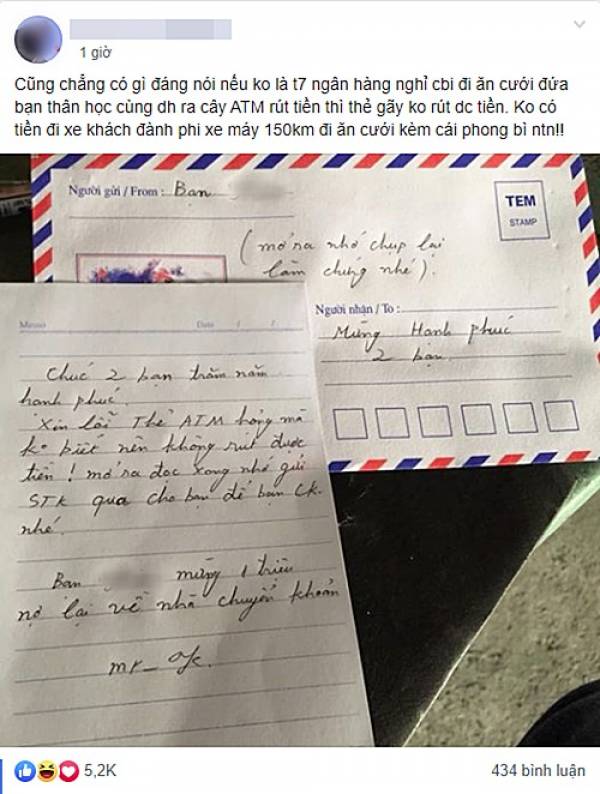 1 giờ
Cũng chẳng có gì đáng nói nếu ko là t7 ngân hàng nghỉ cbi đi ăn cưới đứa
bạn thân học cùng dh ra cây ATM rút tiền thì thẻ gãy ko rút dc tiền. Ko có
tiền đi xe khách đành phi xe máy 150km đi ăn cưới kèm cái phong bì ntn!!
Người gửi / From : Bạn
TEM
STAMP
(mở ra nhớ chụp lại
làm chứng nhé).
Người nhận / To :
Mừng Hạnh phúc
2 bạn
Memo Date / /
Chúc 2 bạn trăm năm
hạnh phúc.
Xin lỗi Thẻ ATM hỏng mà
ko biết nên không rút được
tiền! mở ra đọc xong nhớ gửi
STK qua cho bạn để bạn CK
nhé.
Bạn mừng 1 triệu
nợ lại về nhà chuyển khoản
mr_ ok.
5,2K
434 bình luận